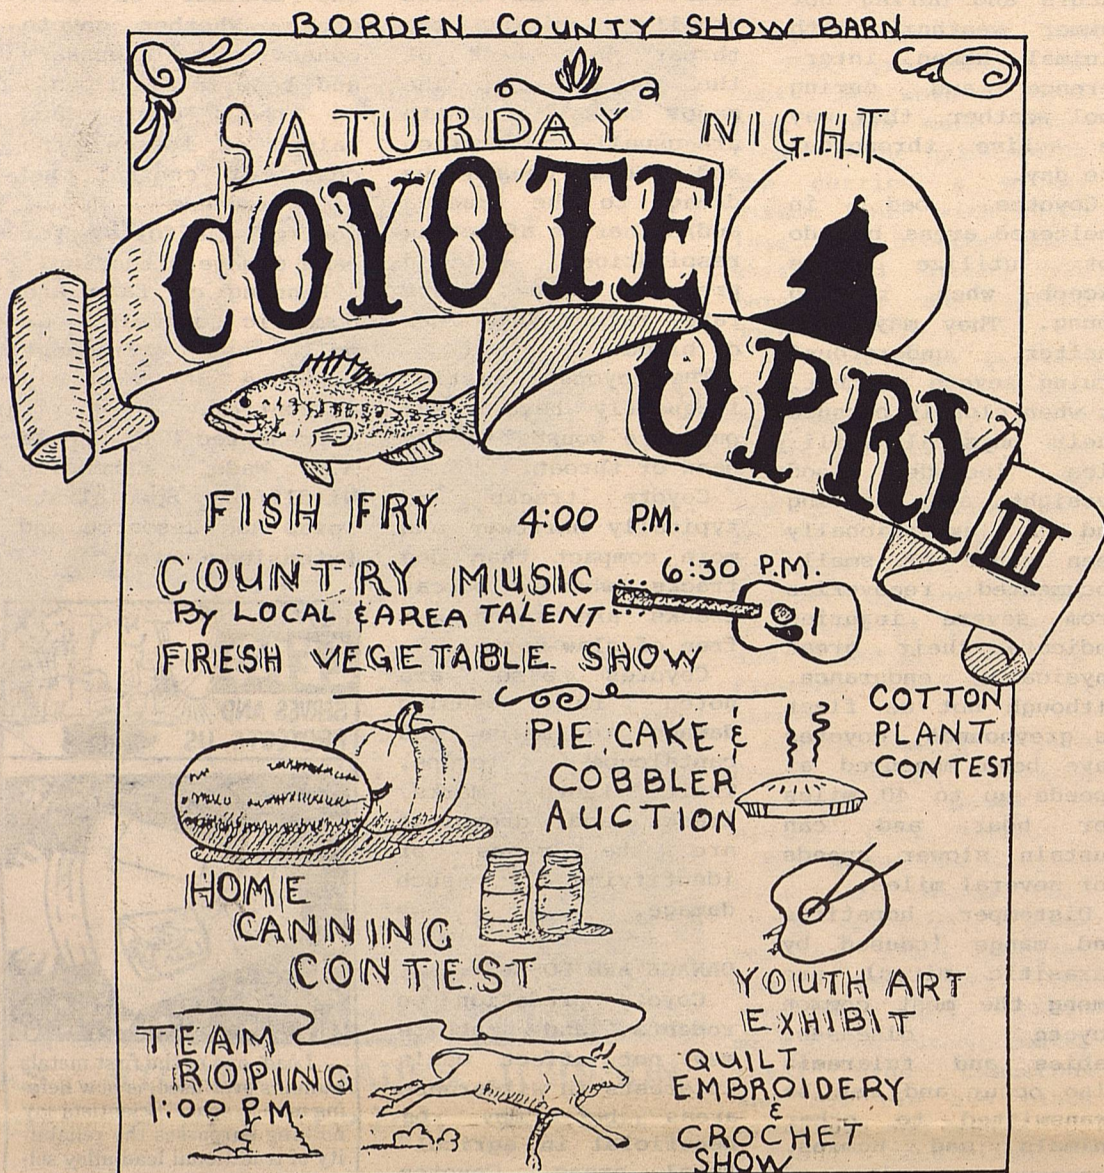 BORDEN COUNTY SHOW BARN
SATURDAY NIGHT
COYOTE
OPRY III
FISH FRY 4:00 P.M.
COUNTRY MUSIC 6:30 P.M.
By LOCAL & AREA TALENT
FRESH VEGETABLE SHOW
PIE, CAKE &
COBBLER
AUCTION
COTTON
PLANT
CONTEST
HOME
CANNING
CONTEST
YOUTH ART
EXHIBIT
TEAM
ROPING
1:00 P.M.
QUILT
EMBROIDERY
&
CROCHET
SHOW